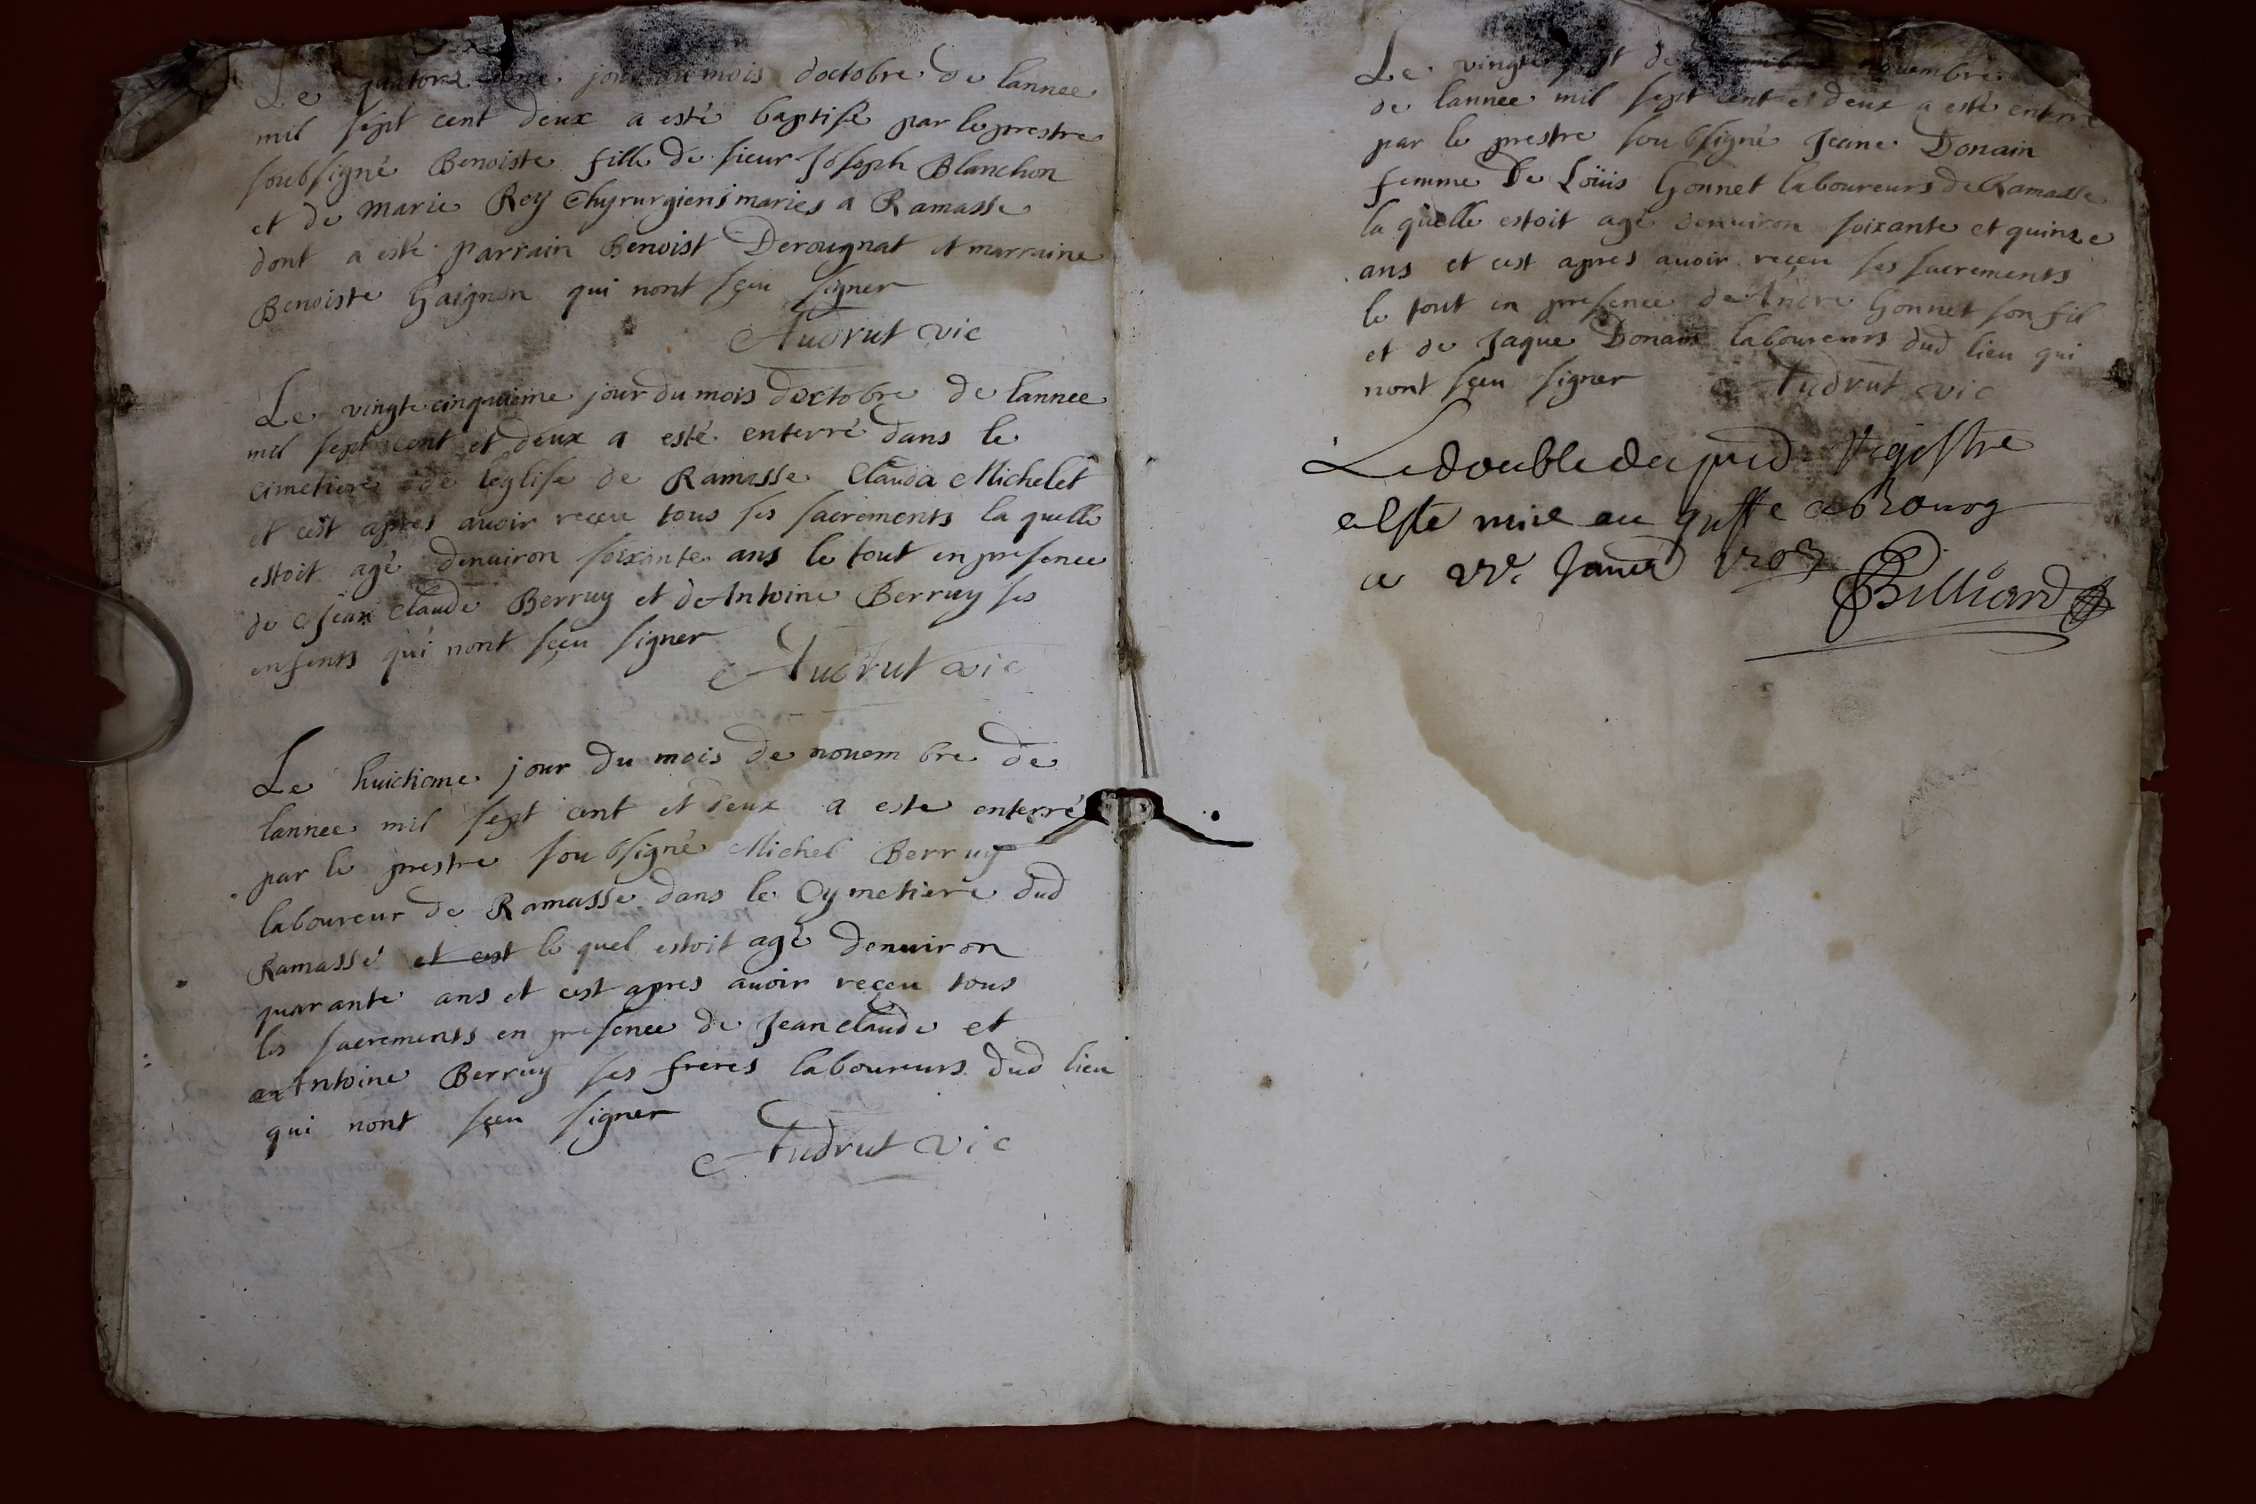 Le jour du mois doctobre de lannee
mil sept cent deux a esté baptisé par le prestre
soubsigné Benoiste fille de sieur Joseph Blanchon
et de marie Rey Chyrurgiens mariés a Ramasse
dont a esté parrain Benoist Derougnat et marraine
Benoiste Gaignon qui nont sçeu signer
Audrut vic
Le vingt cinquieme jour du mois doctobre de lannee
mil sept cent et deux a esté enterré dans le
cimetiere de leglise de Ramasse Clauda Michelet
et cest apres auoir reçeu tous ses sacrements la quelle
estoit agé denuiron soixante ans le tout en presence
de Jean Claude Berruy et de Antoine Berruy ses
enfents qui nont sçeu signer
Audrut vic
Le huictieme jour du mois de nouembre de
lannee mil sept cent et deux a este enterré
par le prestre soubsigné Michel Berruy
laboureur de Ramasse dans le Cymetiere dud
Ramasse et cest le quel estoit agé denuiron
quarante ans et cest apres auoir reçeu tous
les sacrements en presence de Jean claude et
Antoine Berruy ses freres laboureurs dud lieu
qui nont sçeu signer
Audrut vic
Le nouembre
de lannee mil sept cent et deux a esté enterré
par le prestre soubsigné Jeane Donain
femme de Loüis Gonnet laboureurs de Ramasse
la quelle estoit agé denuiron soixante et quinze
ans et cest apres auoir reçeu ses sacrements
le tout en presence de Andre Gonnet son fil
et de Jaque Donain laboureurs dud lieu qui
nont sçeu signer
Audrut vic
Le double du registre
a Este mise au greffe a Bourg
a Janvier 1703
Billiard